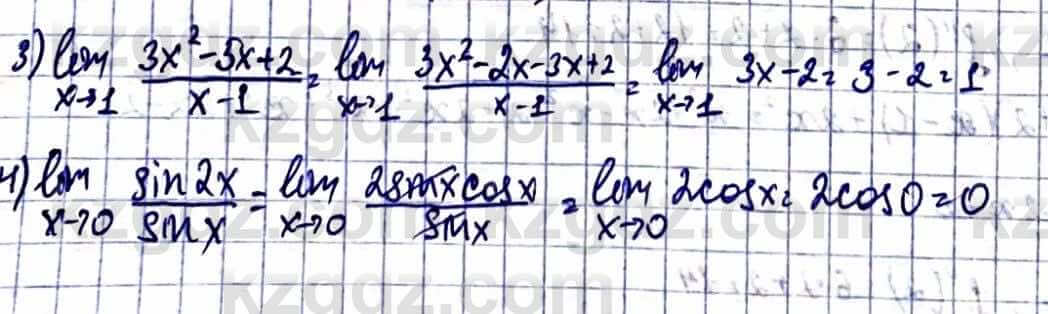 3) lim x→1 (3x²-5x+2)/(x-1) = lim x→1 (3x²-2x-3x+2)/(x-1) = lim x→1 3x-2 = 3-2=1
4) lim x→0 sin2x/sinx = lim x→0 2sinxcosx/sinx = lim x→0 2cosx = 2cos0=0
kzgdz.com